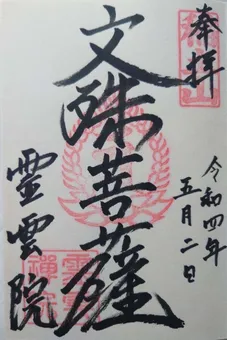 奉拝
令和四年
五月二日
文殊菩薩
霊雲院